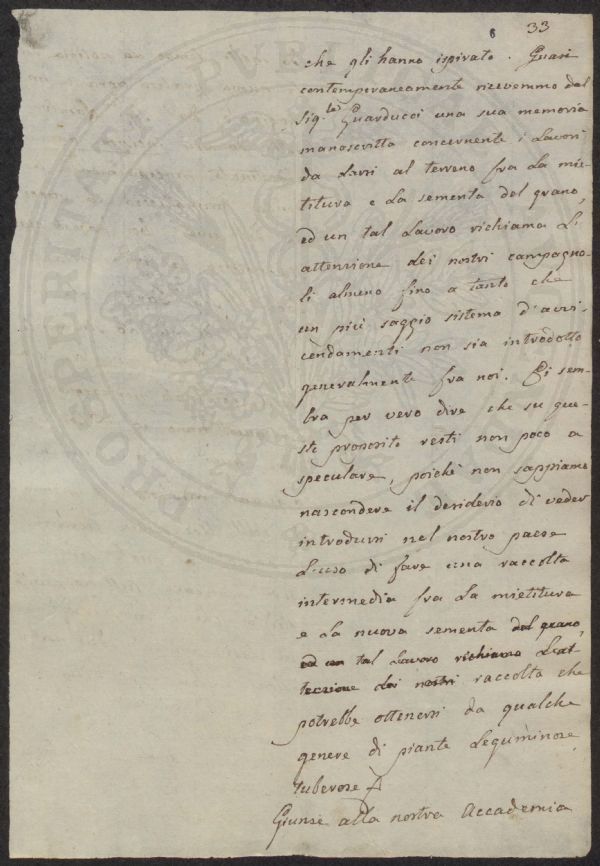 33
che gli hanno ispirato. Quasi
contemporaneamente ricevemmo dal
Sig.re Guarducci una sua memoria
manoscritta concernente i Lavori
da darsi al terreno fra la mie-
titura e la sementa del grano,
ed un tal Lavoro richiama L'
attenzione dei nostri campagno-
li almeno fino a tanto che
un più saggio sistema d'avvi-
cendamenti non sia introdotto
generalmente fra noi. Ci sem-
bra per vero dire che su que-
sto proposito resti non poco a
speculare, poichè non sappiamo
nascondere il desiderio di veder
introdursi nel nostro paese
L'uso di fare una raccolta
intermedia fra La mietitura
e La nuova sementa del grano,
ed un tal Lavoro richiama L'at
tenzione dei nostri raccolta che
potrebbe ottenersi da qualche
genere di piante Leguminose
tuberose
Giunse alla nostra Accademia